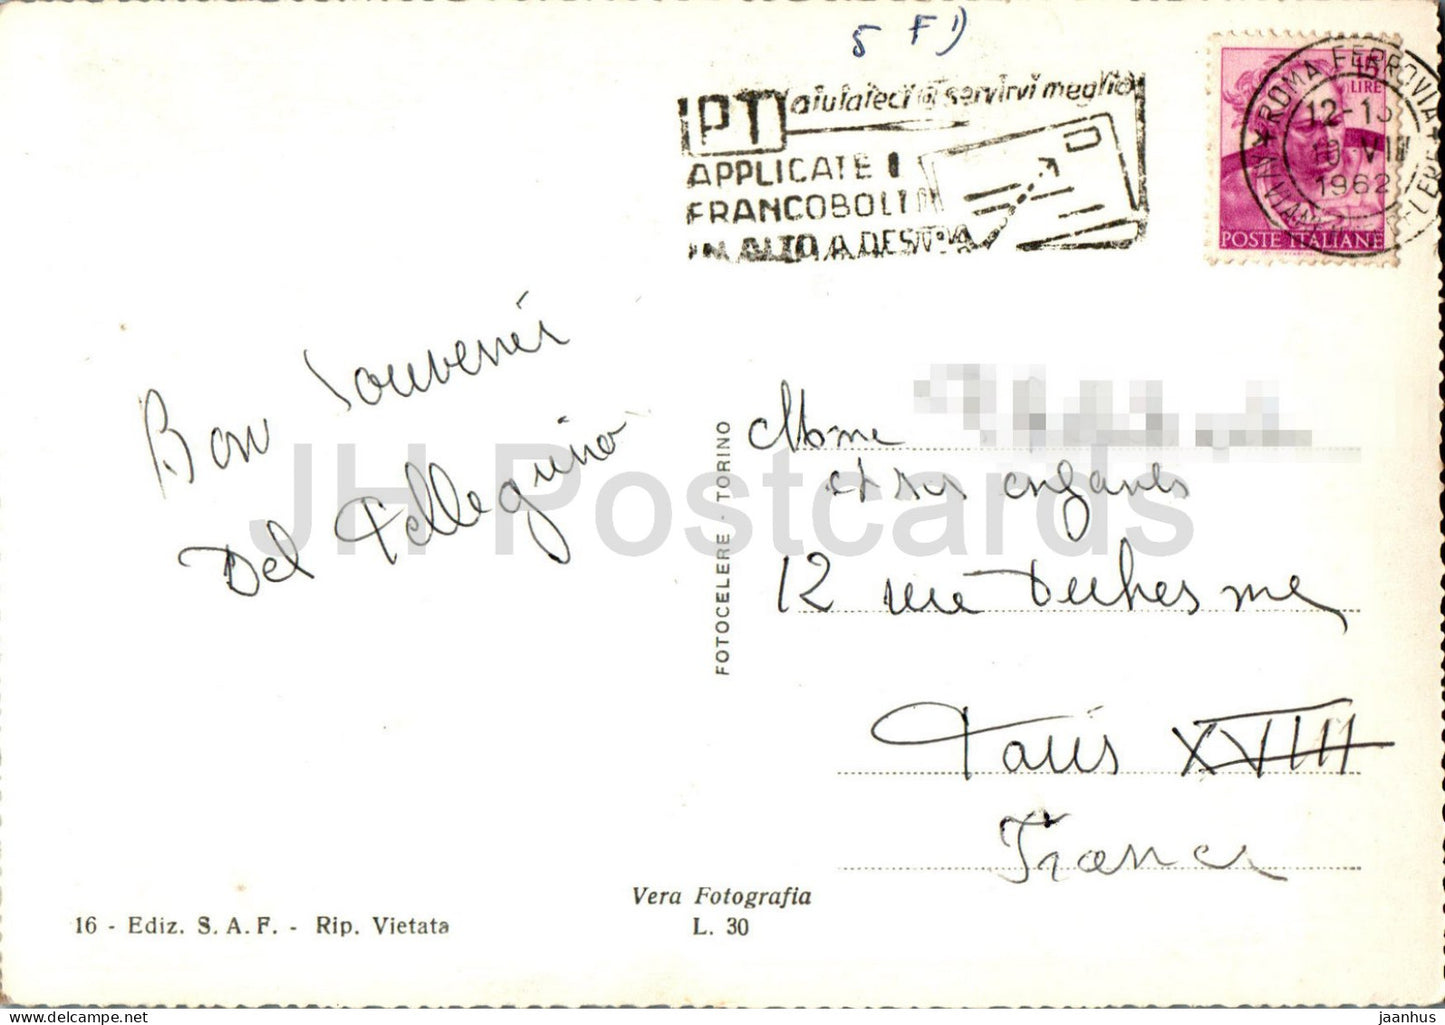 5 F
PT aiutateci a servirvi meglio
APPLICATE I
FRANCOBOLLI
IN ALTO A DESTRA
15
LIRE
POSTE ITALIANE
ROMA FERROVIA
12-13
10 VII
1962
Bon Souvenir
Del Pellegrino
FOTOCELERE - TORINO
Mme
et ses enfants
12 rue Duhesme
Paris XVIII
France
Vera Fotografia
L. 30
16 - Ediz. S. A. F. - Rip. Vietata
JH Postcards
jaanhus @ delcampe.net